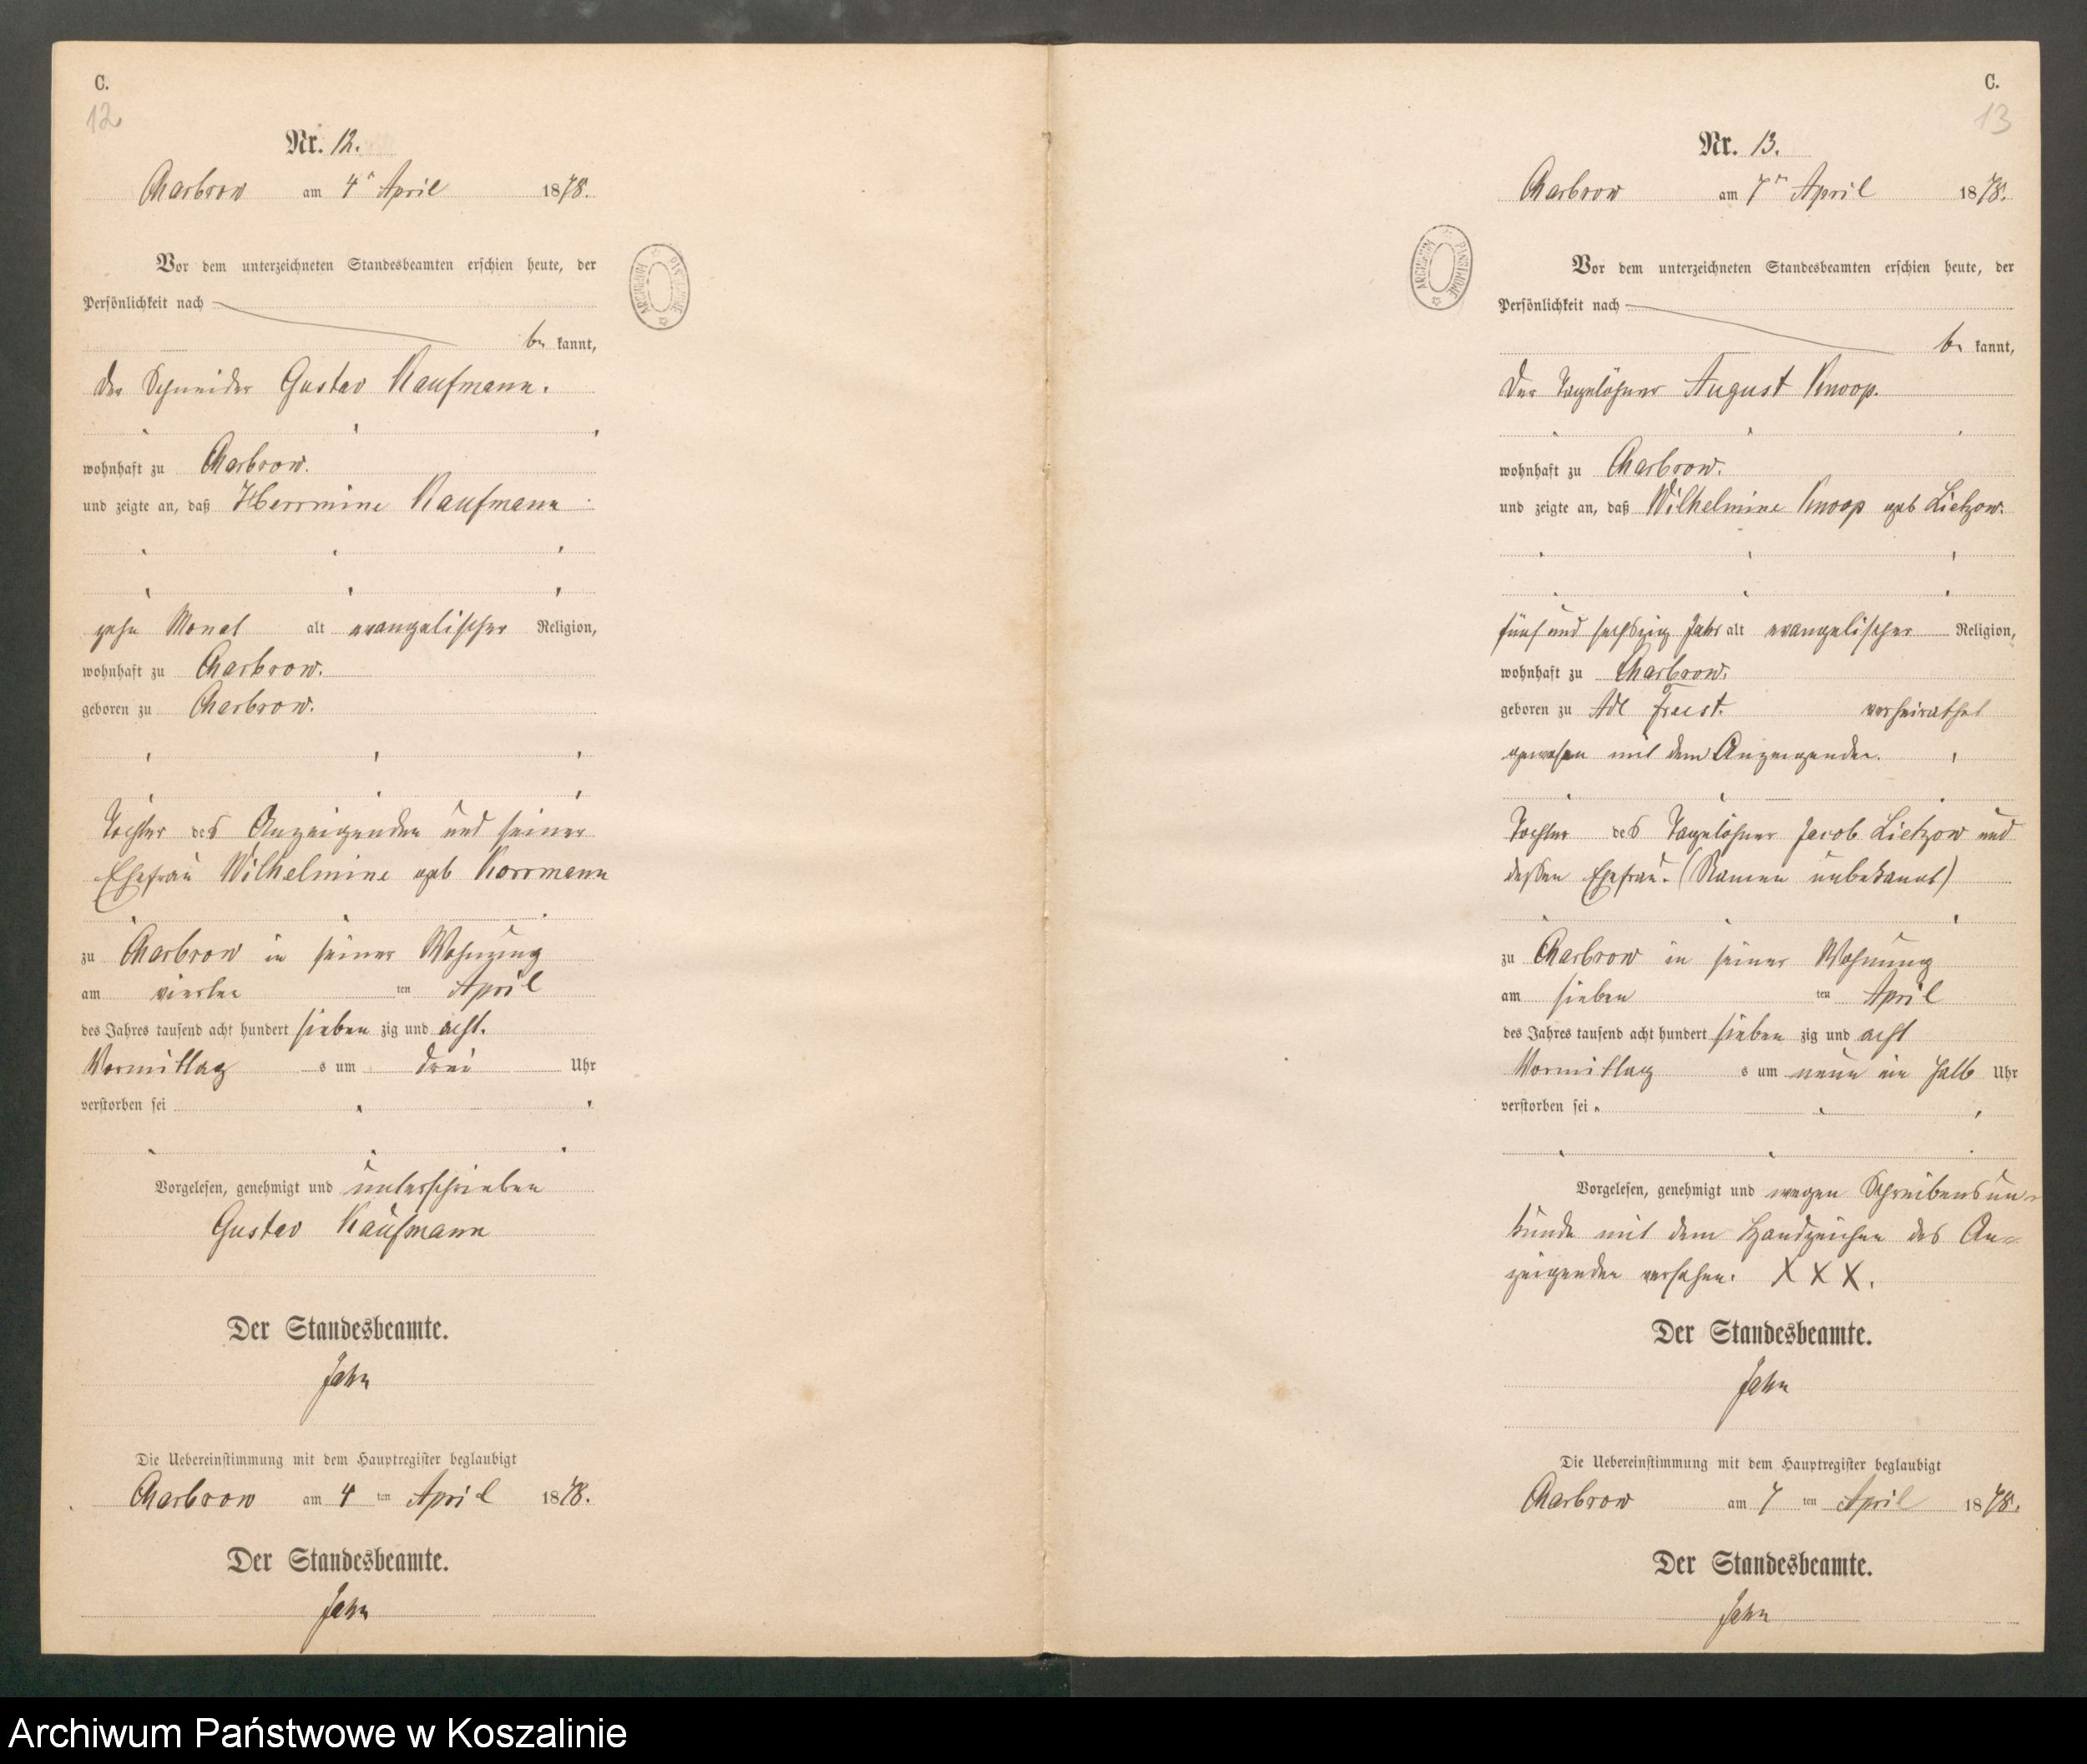 C.
12
Nr. 12.
Charbrow am 4ᵗ April 1878.
Vor dem unterzeichneten Standesbeamten erschien heute, der
Persönlichkeit nach
be kannt,
der Schneider Gustav Kaufmann.
wohnhaft zu Charbrow.
und zeigte an, daß Herrmine Kaufmann
zehn Monat alt evangelischer Religion,
wohnhaft zu Charbrow.
geboren zu Charbrow.
Tochter des Anzeigenden und seiner
Ehefrau Wilhelmine geb Korrmann
zu Charbrow in seiner Wohnung
am vierten ten April
des Jahres tausend acht hundert sieben zig und acht.
Vormittag s um drei Uhr
verstorben sei
Vorgelesen, genehmigt und unterschrieben
Gustav Kaufmann
Der Standesbeamte.
Jahn
Die Uebereinstimmung mit dem Hauptregister beglaubigt
Charbrow am 4 ten April 1878.
Der Standesbeamte.
Jahn
C.
13
Nr. 13.
Charbrow am 7ᵗⁿ April 1878.
Vor dem unterzeichneten Standesbeamten erschien heute, der
Persönlichkeit nach
be kannt,
der Tagelöhner August Knoop.
wohnhaft zu Charbrow.
und zeigte an, daß Wilhelmine Knoop geb Lietzow.
fünf und sechszig Jahr alt evangelischer Religion,
wohnhaft zu Charbrow.
geboren zu Adl Freest. verheirathet
gewesen mit dem Anzeigenden.
Tochter des Tagelöhner Jacob Lietzow und
dessen Ehefrau. (Namen unbekannt)
zu Charbrow in seiner Wohnung
am sieben ten April
des Jahres tausend acht hundert sieben zig und acht
Vormittag s um neun ein halb Uhr
verstorben sei
Vorgelesen, genehmigt und wegen Schreibensun-
kunde mit dem Handzeichen des An=
zeigenden versehen. X X X.
Der Standesbeamte.
Jahn
Die Uebereinstimmung mit dem Hauptregister beglaubigt
Charbrow am 7 ten April 1878.
Der Standesbeamte.
Jahn
Archiwum Państwowe w Koszalinie